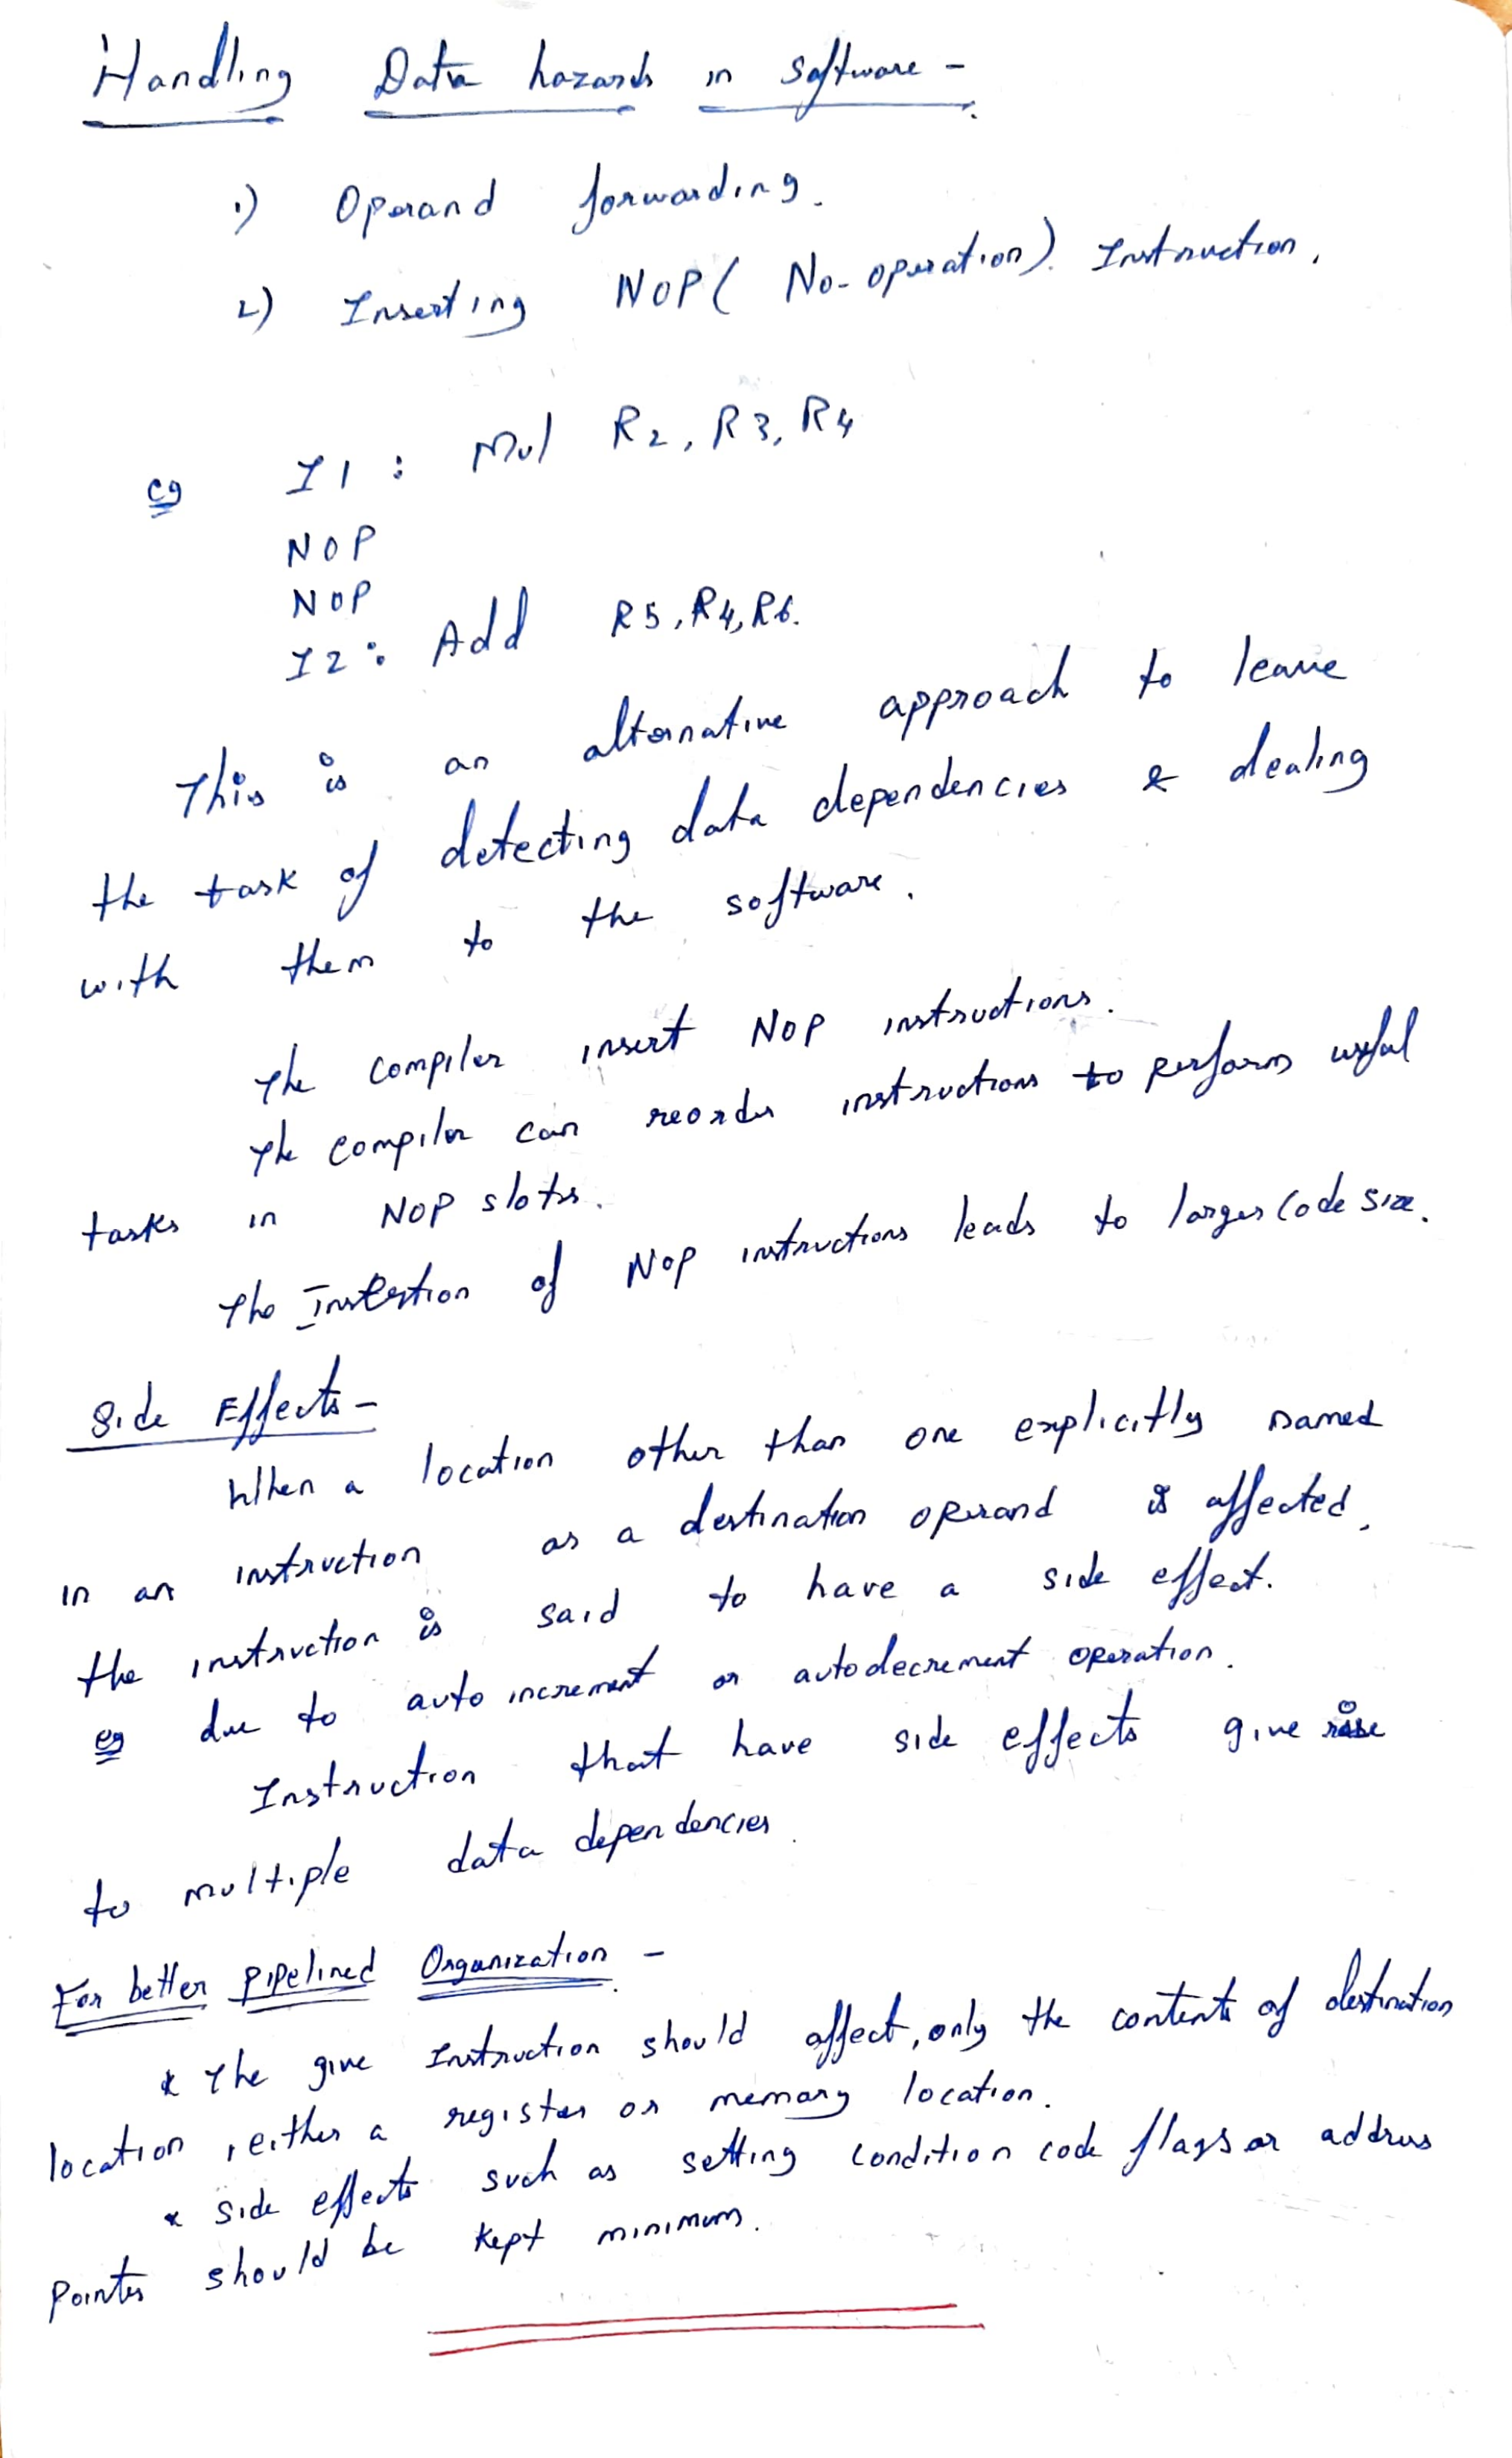 Handling Data hazards in software -
1) Operand forwarding.
2) Inserting NOP ( No-operation). Instruction.
eg I1 : Mul R2, R3, R4
NOP
NOP
I2: Add R5, R4, R6.
This is an alternative approach to leave
the task of detecting data dependencies & dealing
with them to the software.
The compiler insert NOP instructions.
The compiler can reorder instructions to perform useful
tasks in NOP slots.
The Insertion of NOP instructions leads to larger code size.
Side Effects -
When a location other than one explicitly named
in an instruction as a destination operand is affected,
the instruction is said to have a side effect.
eg due to auto increment or autodecrement operation.
Instruction that have side effects give rise
to multiple data dependencies.
For better Pipelined Organization -
* The give Instruction should affect, only the contents of destination
location, either a register or memory location.
* Side effects such as setting condition code flags or address
Pointer should be kept minimum.